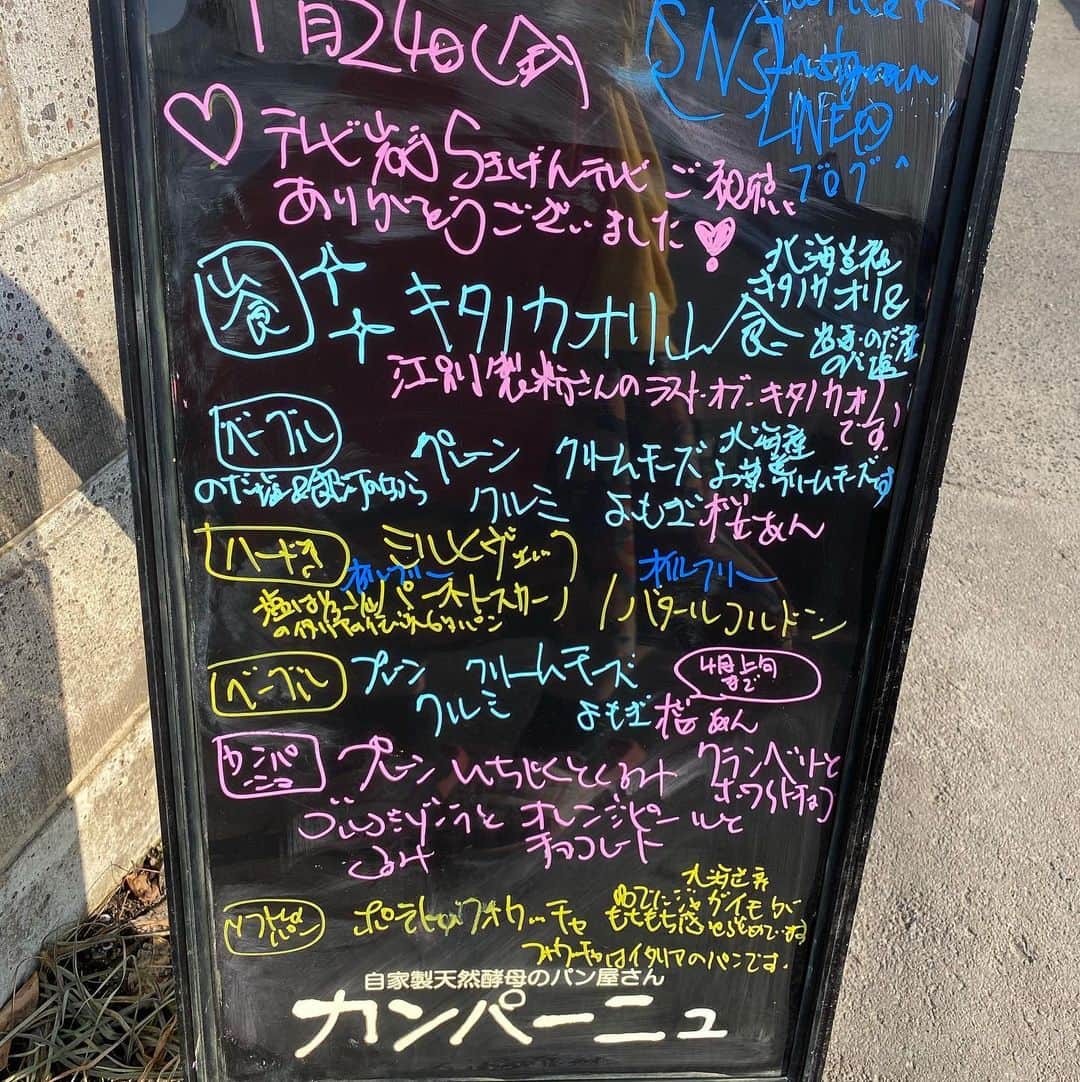 1月24日(金)
SNS
Twitter
Instgram
LINE@
ブログ
テレビ岩手5きげんテレビご視聴
ありがとうございました
山食
キタノカオリ山食
北海道
キタノカオリ&
のだ塩
江別製粉さんのラスト・オブ・キタノカオリ
です!
ベーグル
プレーン クリームチーズ
北海道産
クリームチーズ
のだ塩&
クルミ よもぎ 桜あん
ハード系
オイルフリー オイルフリー
パーネトスカーノ / バタールコルドン
パン
ベーグル
プレーン クリームチーズ
4月上旬
まで
クルミ よもぎ 桜あん
カンパーニュ
プレーン いちじくとくるみ
クランベリーと
ホワイトチョコ
オレンジピールと
くるみ チョコレート
ソフトな
パン
ポテトのフォカッチャ
北海道産
ゆでたジャガイモが
もちもち感
フォカッチャはイタリアのパンです。
自家製天然酵母のパン屋さん
カンパーニュ